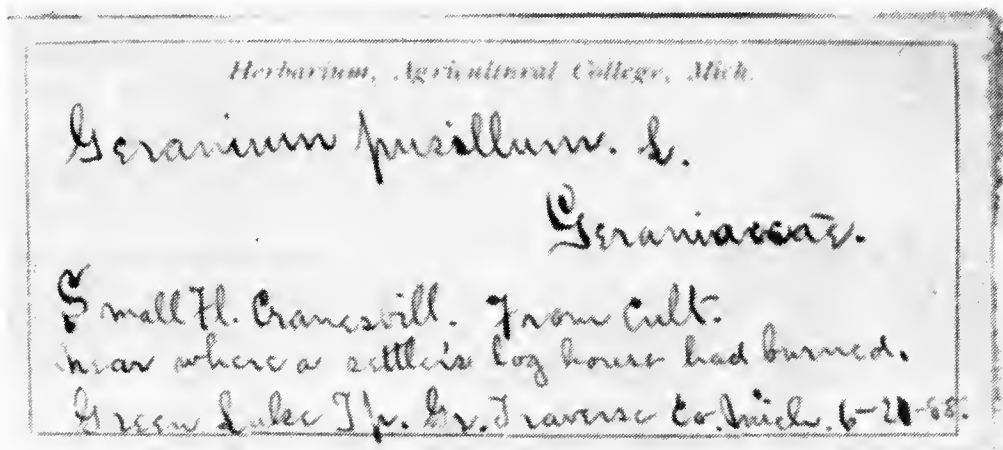 Herbarium, Agricultural College, Mich.
Geranium pusillum. L.
Geraniaceae.
Small Fl. Cranesbill. From Cult.
near where a settler's log house had burned.
Green Lake Tp. Gr. Traverse Co. Mich.